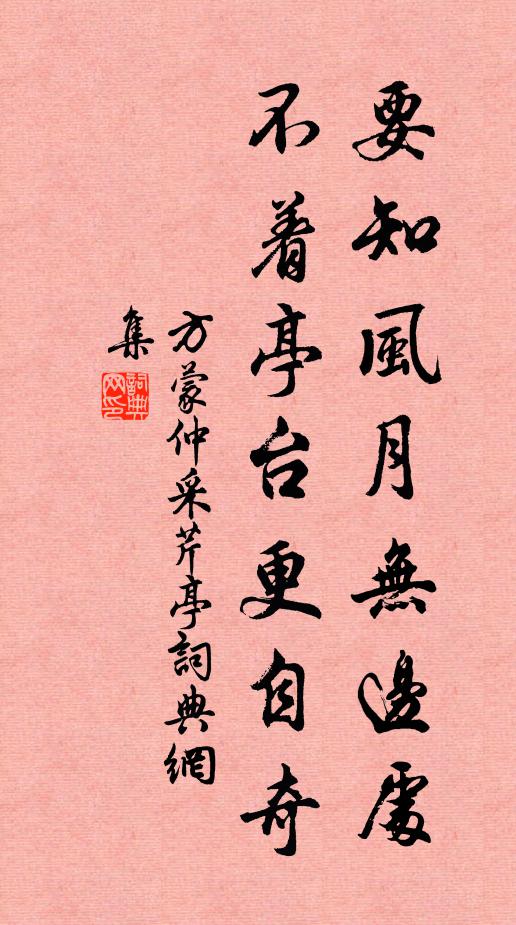 要知風月無邊處
不着亭台更自奇
方蒙仲采芹亭詞典網
集
詞典
网印